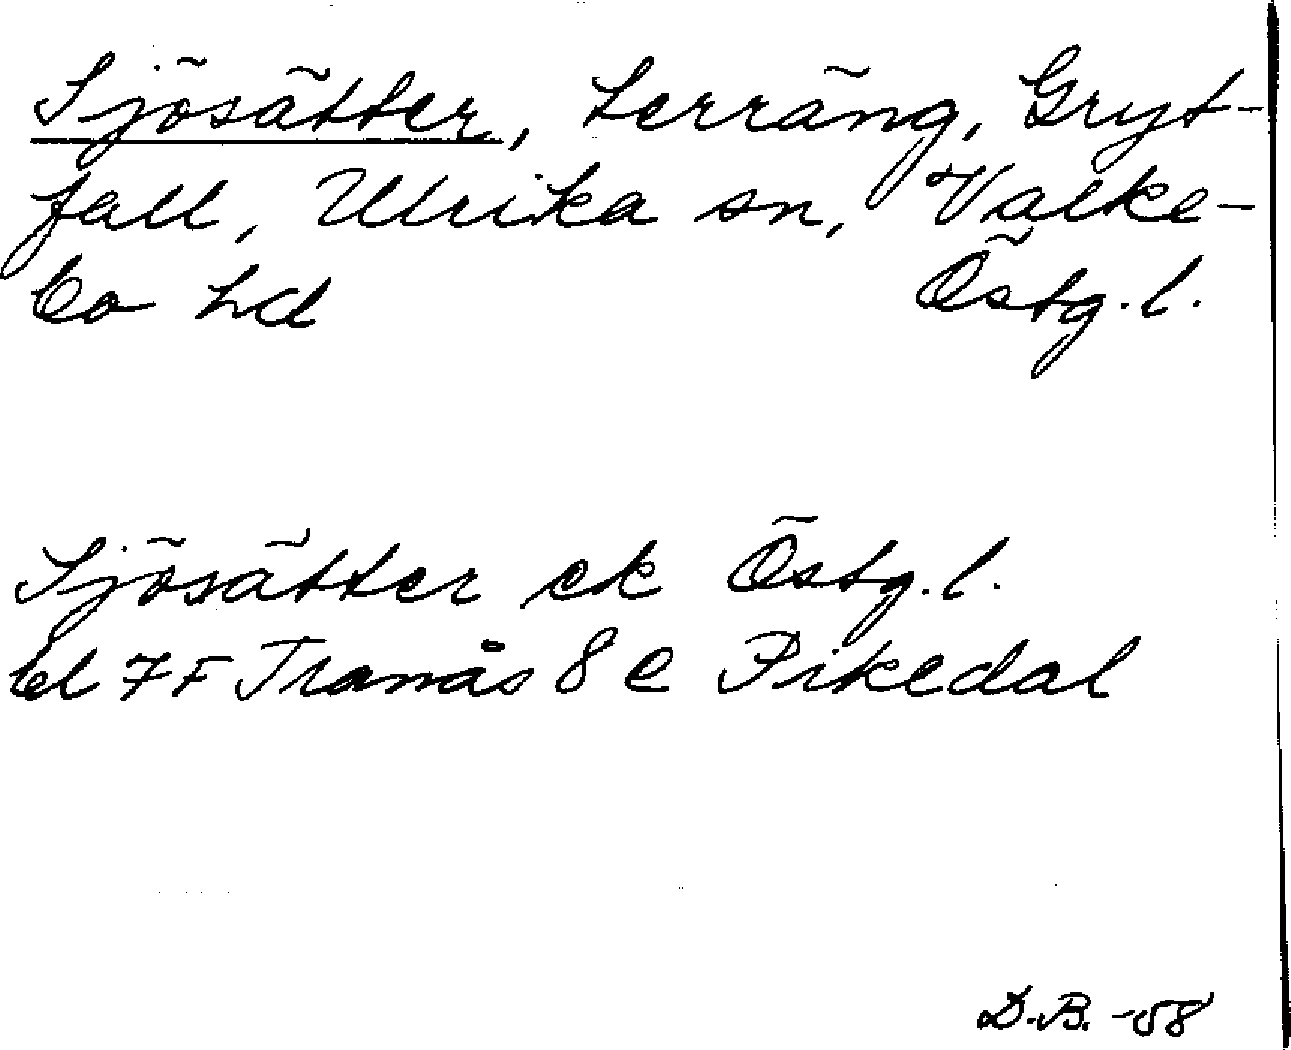 Sjösätter, terräng, Gryt-
fall, Ulrika sn, Valke-
bo hd Östg. l.
Sjösätter ek Östg. l.
bl 7F Tranås 8 e Pikedal
D.B. -58